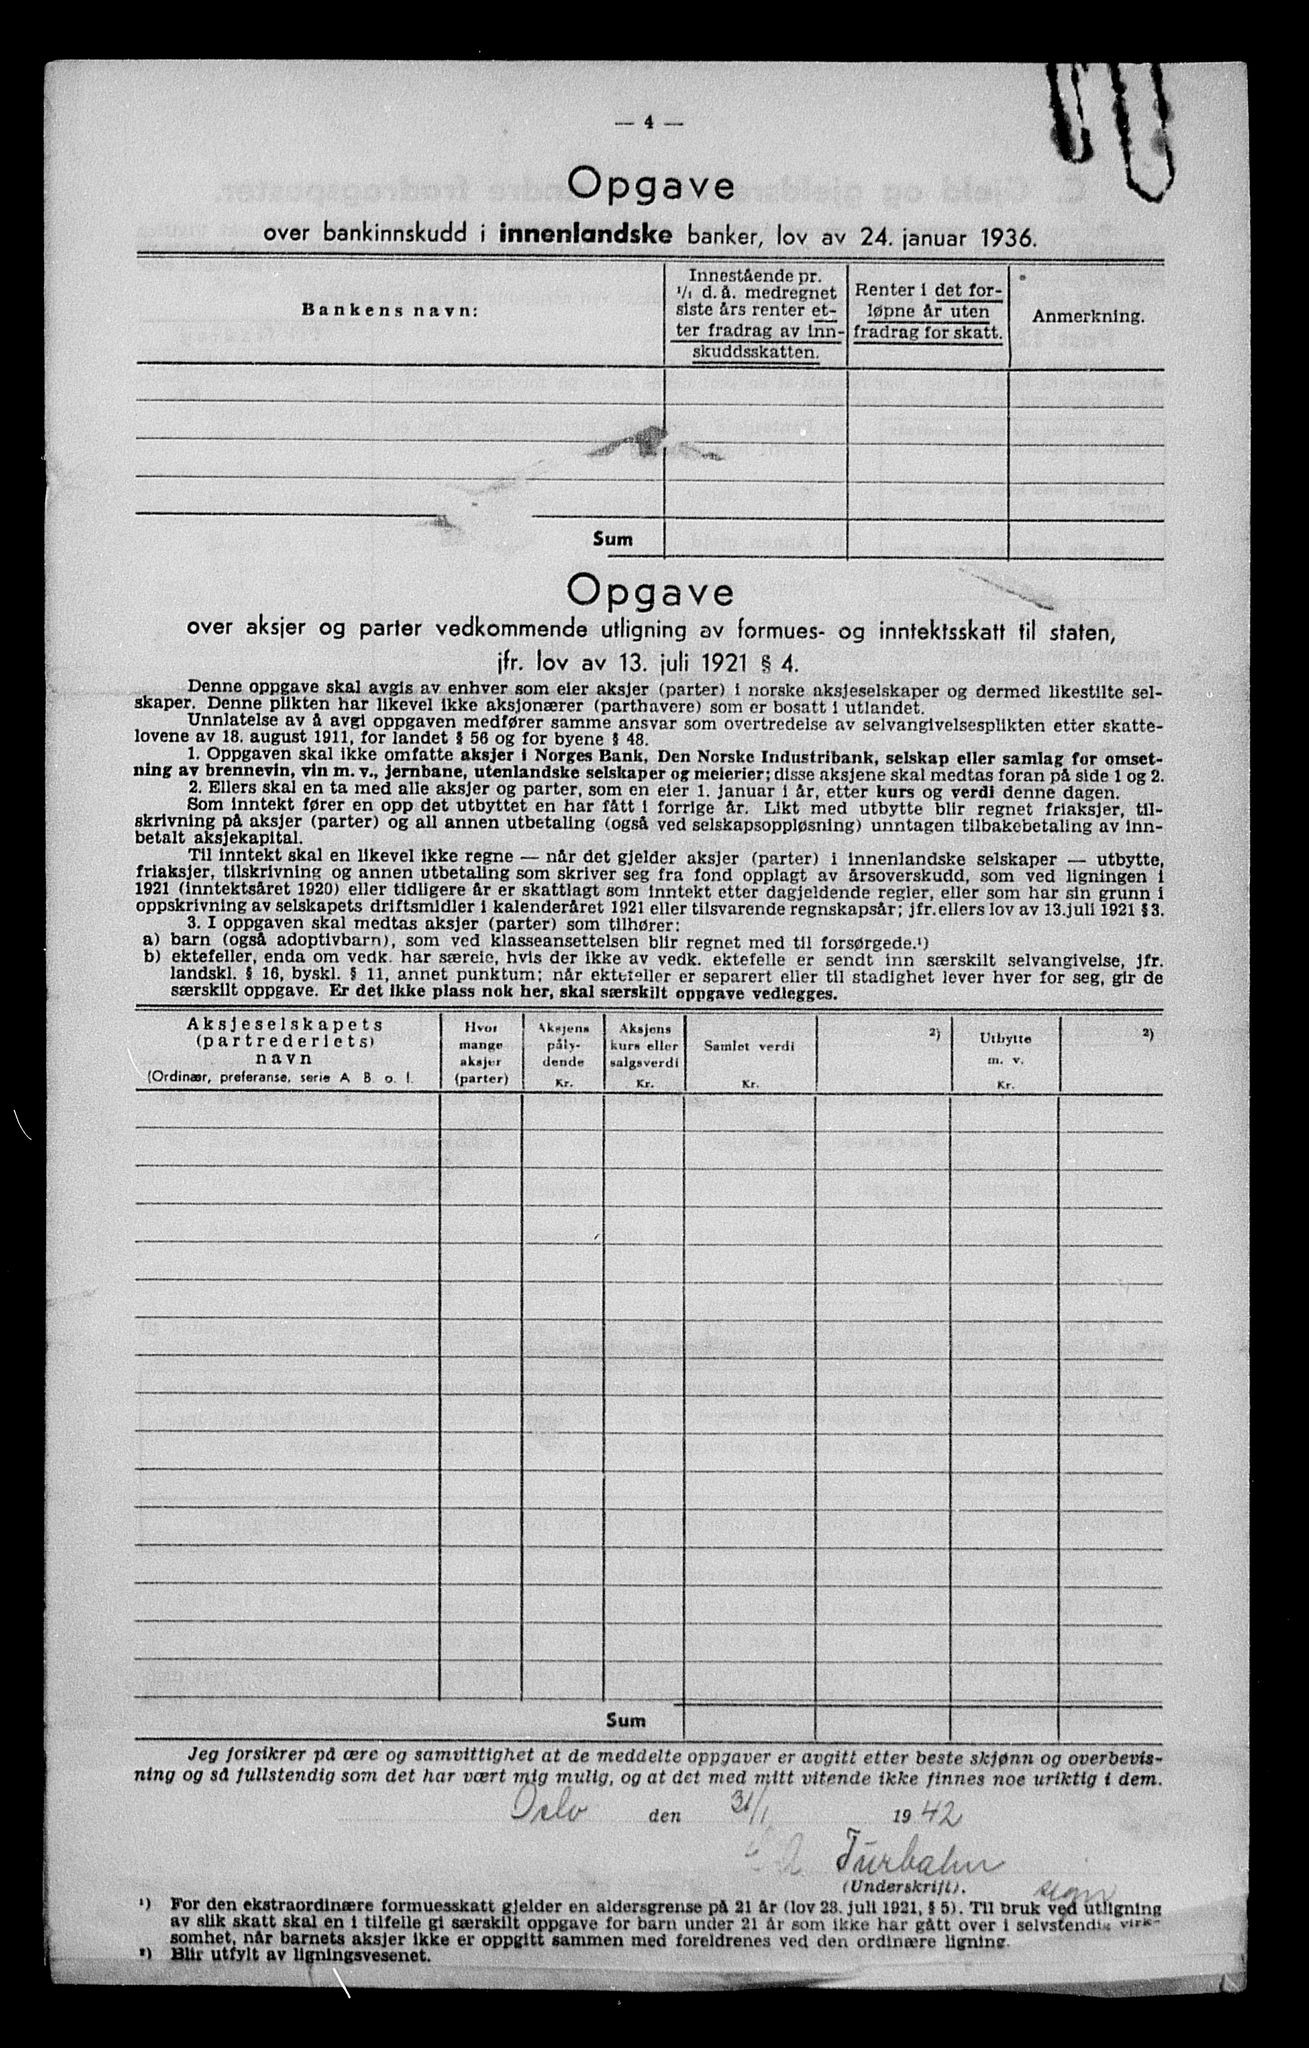 — 4 —
Opgave
over bankinnskudd i innenlandske banker, lov av 24. januar 1936.
Bankens navn:
Innestående pr.
1/1 d. å. medregnet
siste års renter et-
ter fradrag av inn-
skuddsskatten.
Renter i det for-
løpne år uten
fradrag for skatt.
Anmerkning.
Sum
Opgave
over aksjer og parter vedkommende utligning av formues- og inntektsskatt til staten,
jfr. lov av 13. juli 1921 § 4.
Denne oppgave skal avgis av enhver som eier aksjer (parter) i norske aksjeselskaper og dermed likestilte sel-
skaper. Denne plikten har likevel ikke aksjonærer (parthavere) som er bosatt i utlandet.
Unnlatelse av å avgi oppgaven medfører samme ansvar som overtredelse av selvangivelsesplikten etter skatte-
lovene av 18. august 1911, for landet § 56 og for byene § 48.
1. Oppgaven skal ikke omfatte aksjer i Norges Bank, Den Norske Industribank, selskap eller samlag for omset-
ning av brennevin, vin m. v., jernbane, utenlandske selskaper og meierier; disse aksjene skal medtas foran på side 1 og 2.
2. Ellers skal en ta med alle aksjer og parter, som en eier 1. januar i år, etter kurs og verdi denne dagen.
Som inntekt fører en opp det utbyttet en har fått i forrige år. Likt med utbytte blir regnet friaksjer, til-
skrivning på aksjer (parter) og all annen utbetaling (også ved selskapsoppløsning) unntagen tilbakebetaling av inn-
betalt aksjekapital.
Til inntekt skal en likevel ikke regne — når det gjelder aksjer (parter) i innenlandske selskaper — utbytte,
friaksjer, tilskrivning og annen utbetaling som skriver seg fra fond opplagt av årsoverskudd, som ved ligningen i
1921 (inntektsåret 1920) eller tidligere år er skattlagt som inntekt etter dagjeldende regler, eller som har sin grunn i
oppskrivning av selskapets driftsmidler i kalenderåret 1921 eller tilsvarende regnskapsår; jfr. ellers lov av 13. juli 1921 § 3.
3. I oppgaven skal medtas aksjer (parter) som tilhører:
a) barn (også adoptivbarn), som ved klasseansettelsen blir regnet med til forsørgede.¹)
b) ektefeller, enda om vedk. har særeie, hvis der ikke av vedk. ektefelle er sendt inn særskilt selvangivelse, jfr.
landskl. § 16, byskl. § 11, annet punktum; når ektefeller er separert eller til stadighet lever hver for seg, gir de
særskilt oppgave. Er det ikke plass nok her, skal særskilt oppgave vedlegges.
Aksjeselskapets
(partrederiets)
navn
(Ordinær, preferanse, serie A B o. l.
Hvor
mange
aksjer
(parter)
Aksjens
påly-
dende
Kr.
Aksjens
kurs eller
salgsverdi
Kr.
Samlet verdi
Kr.
²)
Utbytte
m. v.
Kr.
²)
Sum
Jeg forsikrer på ære og samvittighet at de meddelte oppgaver er avgitt etter beste skjønn og overbevis-
ning og så fullstendig som det har vært mig mulig, og at det med mitt vitende ikke finnes noe uriktig i dem.
Oslo den 31/1 1942
Furbahn
(Underskrift).
sign
¹) For den ekstraordinære formuesskatt gjelder en aldersgrense på 21 år (lov 28. juli 1921, § 5). Til bruk ved utligning
av slik skatt skal en i tilfelle gi særskilt oppgave for barn under 21 år som ikke har gått over i selvstendig virk-
somhet, når barnets aksjer ikke er oppgitt sammen med foreldrenes ved den ordinære ligning.
²) Blir utfylt av ligningsvesenet.